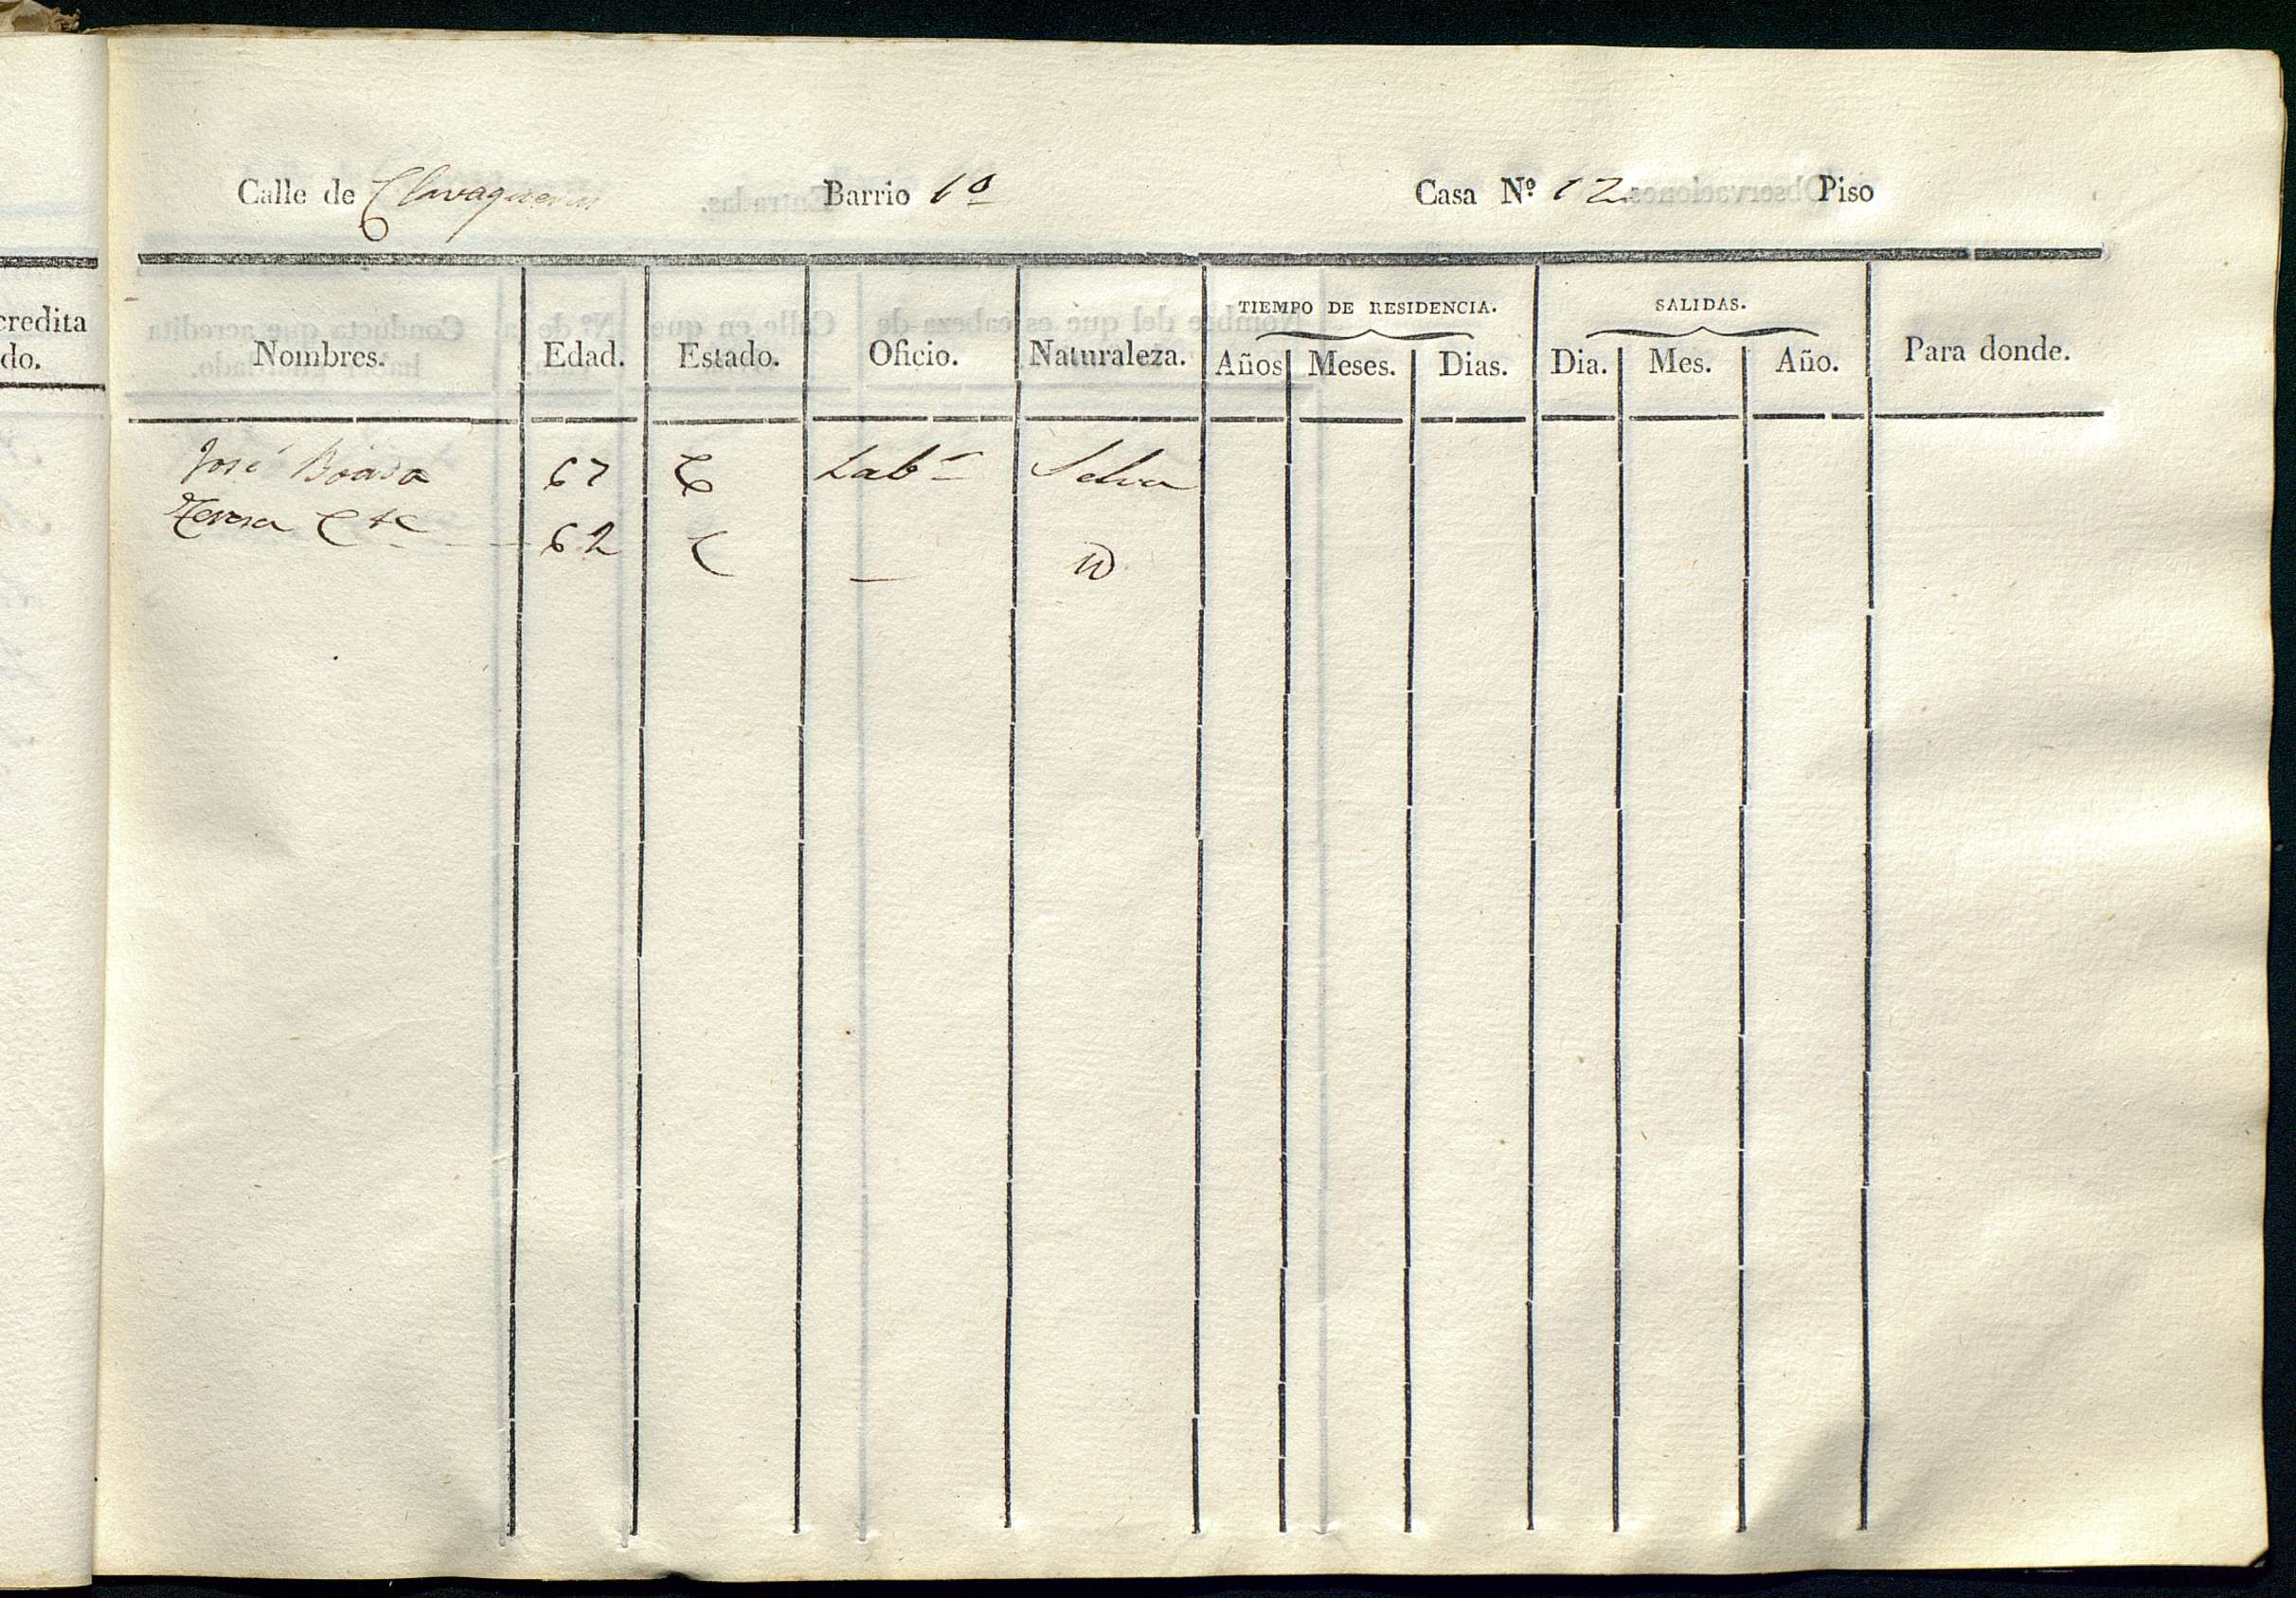 Calle de Clavagueras Barrio 1º Casa Nº 12 Piso
credita
do.
TIEMPO DE RESIDENCIA. SALIDAS.
Nombres. Edad. Estado. Oficio. Naturaleza. Años Meses. Dias. Dia. Mes. Año. Para donde.
José Boada 67 C Labr Selva
Teresa 62 C — id